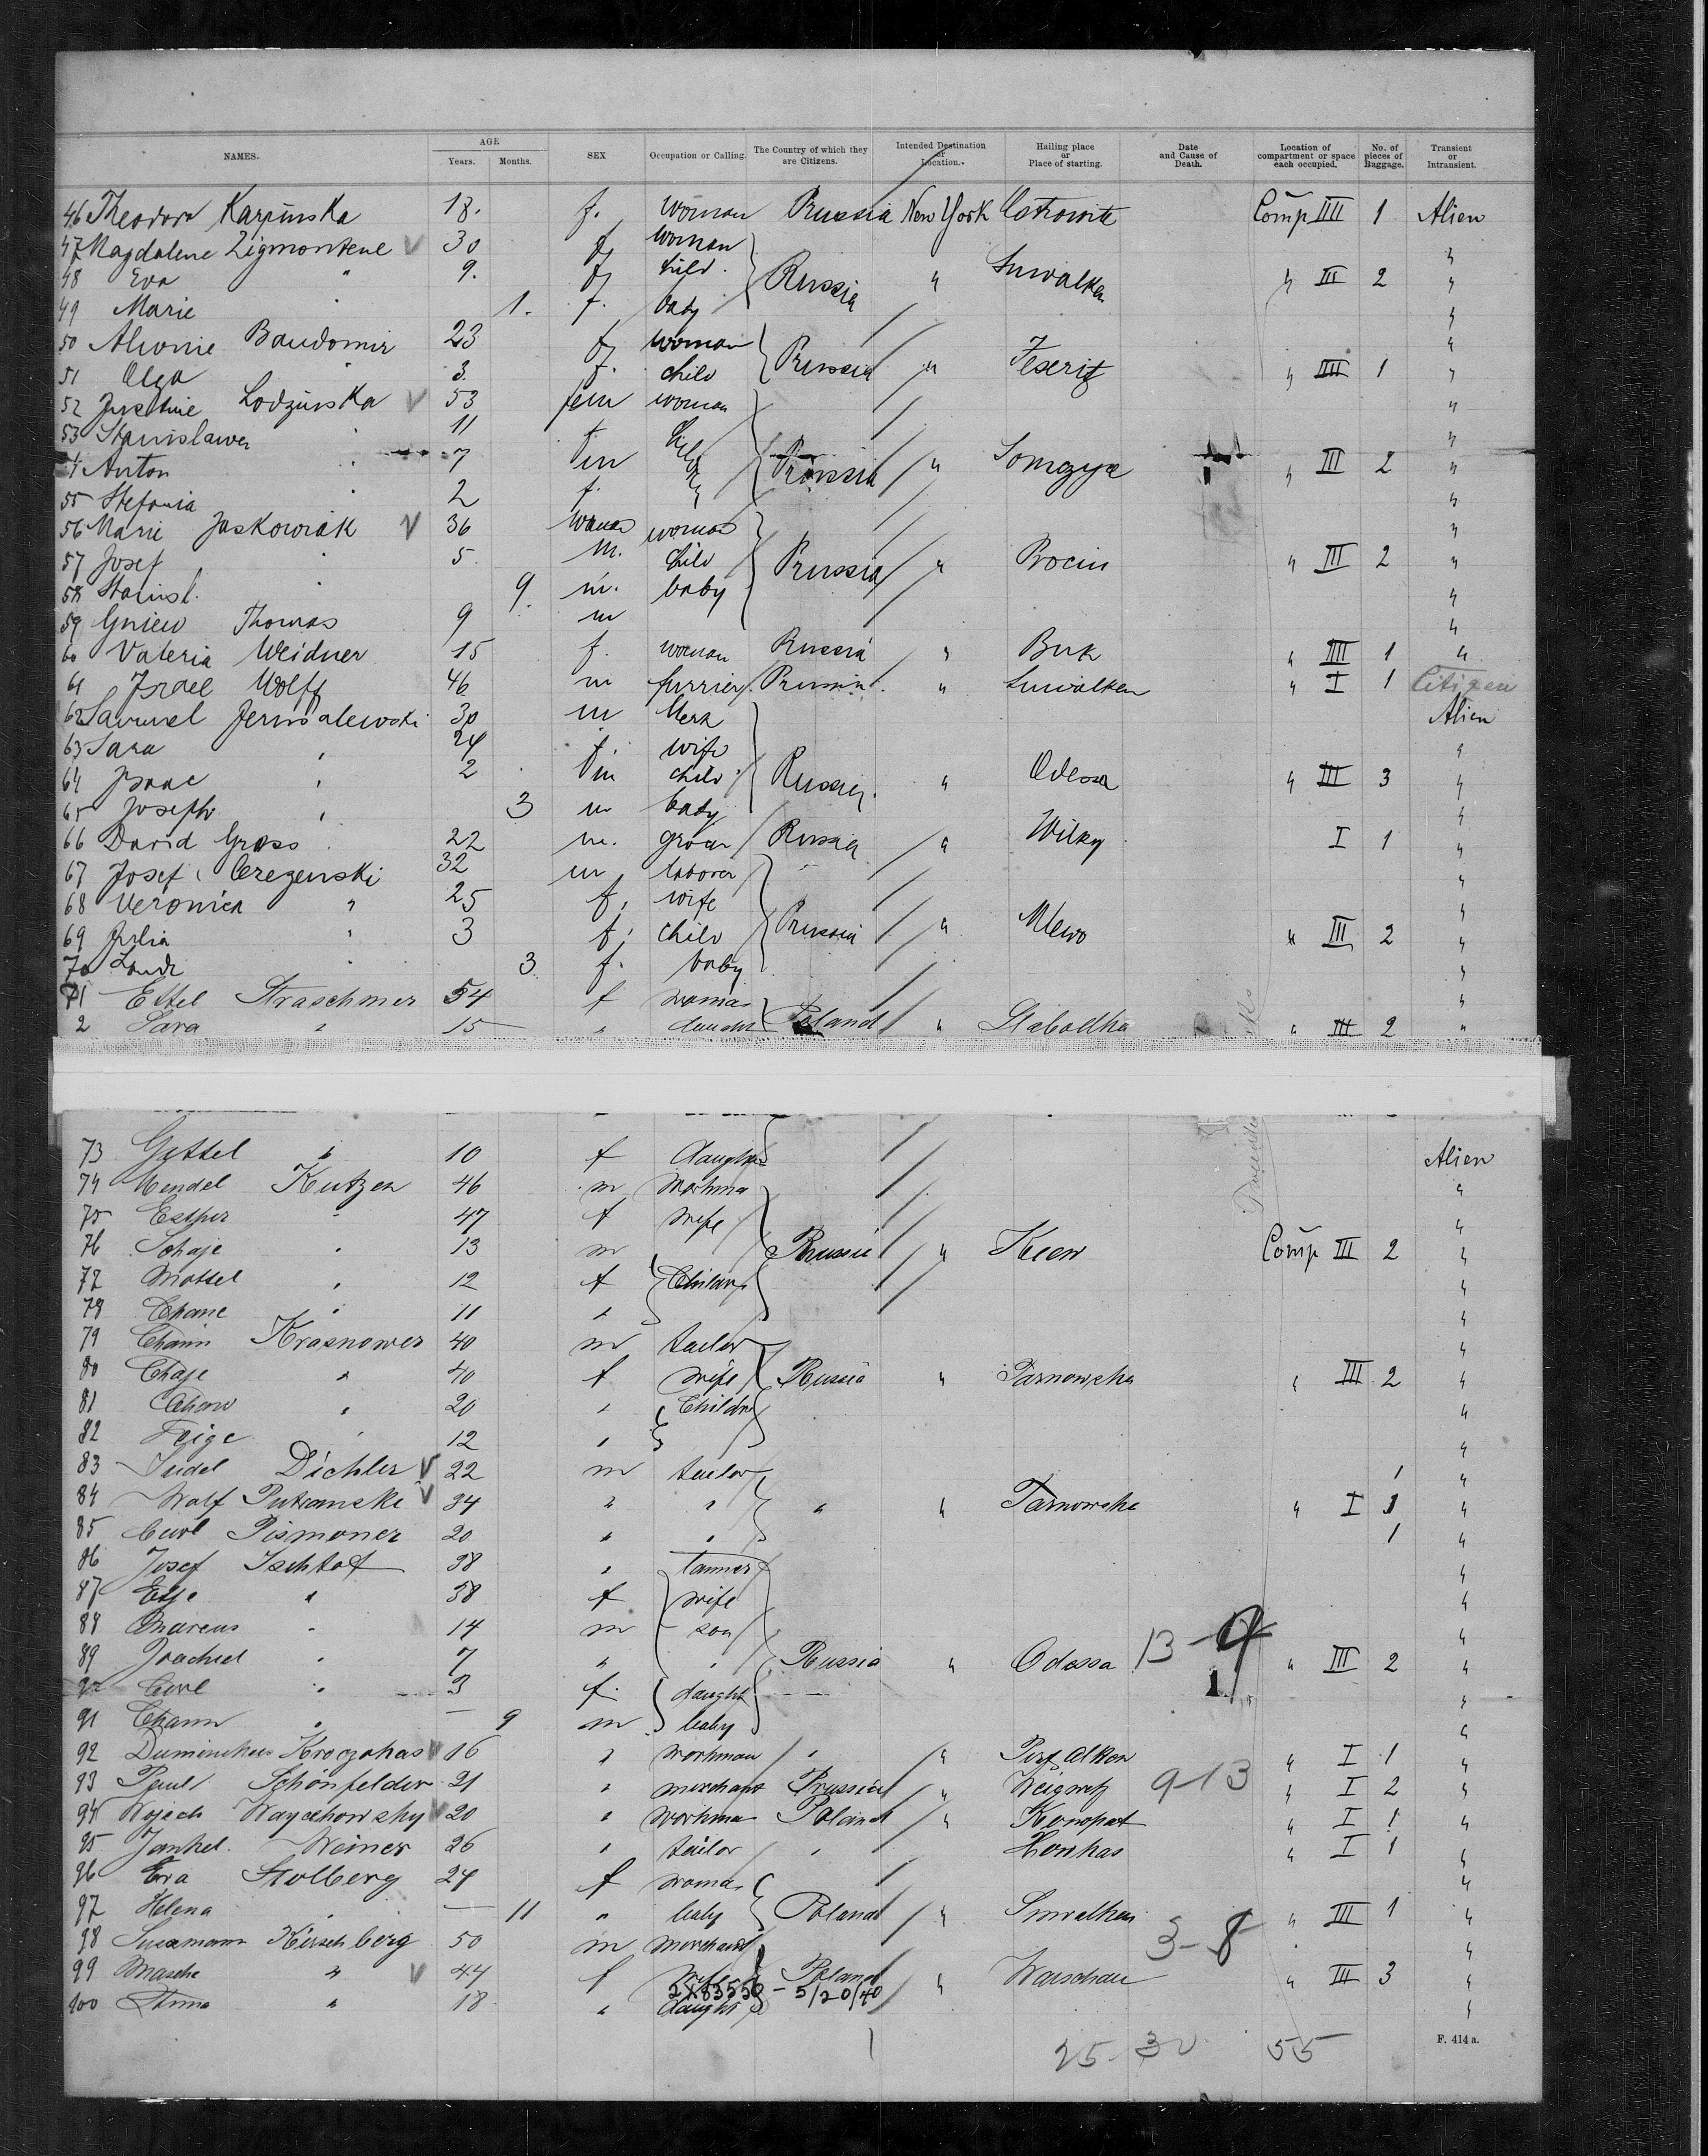 NAMES. AGE Years. Months. SEX Occupation or Calling. The Country of which they are Citizens. Intended Destination or Location. Hailing place or Place of starting. Date and Cause of Death. Location of compartment or space each occupied. No. of pieces of Baggage. Transient or Intransient.
46 Theodora Karpinska 18. f. woman Prussia New York Comp IIII 1 Alien
47 Magdalene Zigmontene V 30 f woman "
48 Eva " 9. f child. Russia " Suwalken " III 2 "
49 Marie " 1. f. baby "
50 Baudomir 23 f woman "
51 Olga " 3. f. child Prussia " " IIII 1 "
52 Justine Lodzinska V 53 fem woman "
53 Stanislawa " 11 f. "
Anton " 7 m Prussia " " III 2 "
55 Stefania " 2 f. "
56 Marie Jaskowiak V 36 woman woman "
57 Josef " 5. m. child Prussia " Procin " III 2 "
58 Stanisl. " 9. m. baby "
59 Gniew Thomas 9 m "
60 Valeria Weidner 15 f. woman Russia " Buk " IIII 1 "
61 Israel Wolff 46 m furrier " Suwalken " I 1 Citizen
62 Samuel Jerusalewski 30 m Merk Alien
63 Sara " 24 f. wife "
64 Isaac " 2 m child Russia. " Odessa " III 3 "
65 Joseph " 3 m baby "
66 David Gross 22 m. grocer Russia " Wilky I 1 "
67 Josef Cerezenski 32 m laborer "
68 Veronica " 25 f. wife "
69 Julia " 3 f. child Prussia " Mewo " III 2 "
70 " 3 f. baby "
71 Ettel Straschmer 54 f woman "
2 Sara " 15 " daught Poland " " III 2 "
73 Gittel " 10 f daughter Alien
74 Mendel Kutzen 46 m workman "
75 Esther " 47 f wife "
76 Schaje " 13 m Russia " Kiew Comp III 2 "
77 Mottel " 12 f Children "
78 Chane " 11 " "
79 Chaim Krasnower 40 m tailor "
80 Chaje " 40 f wife Russia " Tarnowska " III 2 "
81 " 20 " Children "
82 Feige " 12 " "
83 Judel Dichler V 22 m tailor 1 "
84 Wolf V 34 " " " " Tarnowska " I 1 "
85 Pismoner 20 " " 1 "
86 Josef 38 " tanner "
87 Etje " 38 f wife "
88 Marcus " 14 m son "
89 Joachiel " 7 " " Russia " Odessa 13-9 " III 2 "
" 3 f. daught 1/ "
91 Chaim " — 9 m baby "
92 V 16 " workman " " " I 1 "
93 Paul Schönfelder 21 " merchant Prussia " 9-13 " I 2 "
94 Wojech Waychowsky V 20 " workman Poland " Konopat " I 1 "
95 Jankel. Weiner 26 " tailor " " I 1 "
96 Eva Stolberg 24 f woman "
97 Helena " — 11 " baby Poland " Suwalken " III 1 "
98 Sussmann Kirschberg 50 m merchant 3-8 "
99 Masche " V 44 f wife Poland " Warschau " III 3 "
2X83550 - 5/20/40
100 " 18 " daught "
25-30 55
F. 414 a.